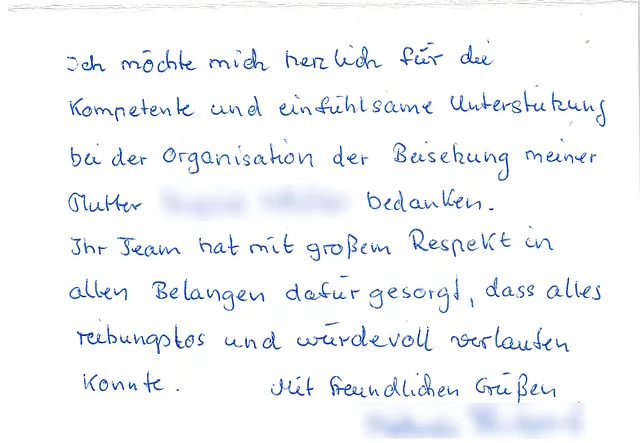 Ich möchte mich herzlich für die
kompetente und einfühlsame Unterstützung
bei der Organisation der Beisetzung meiner
Mutter bedanken.
Ihr Team hat mit großem Respekt in
allen Belangen dafür gesorgt, dass alles
reibungslos und würdevoll verlaufen
konnte. Mit freundlichen Grüßen